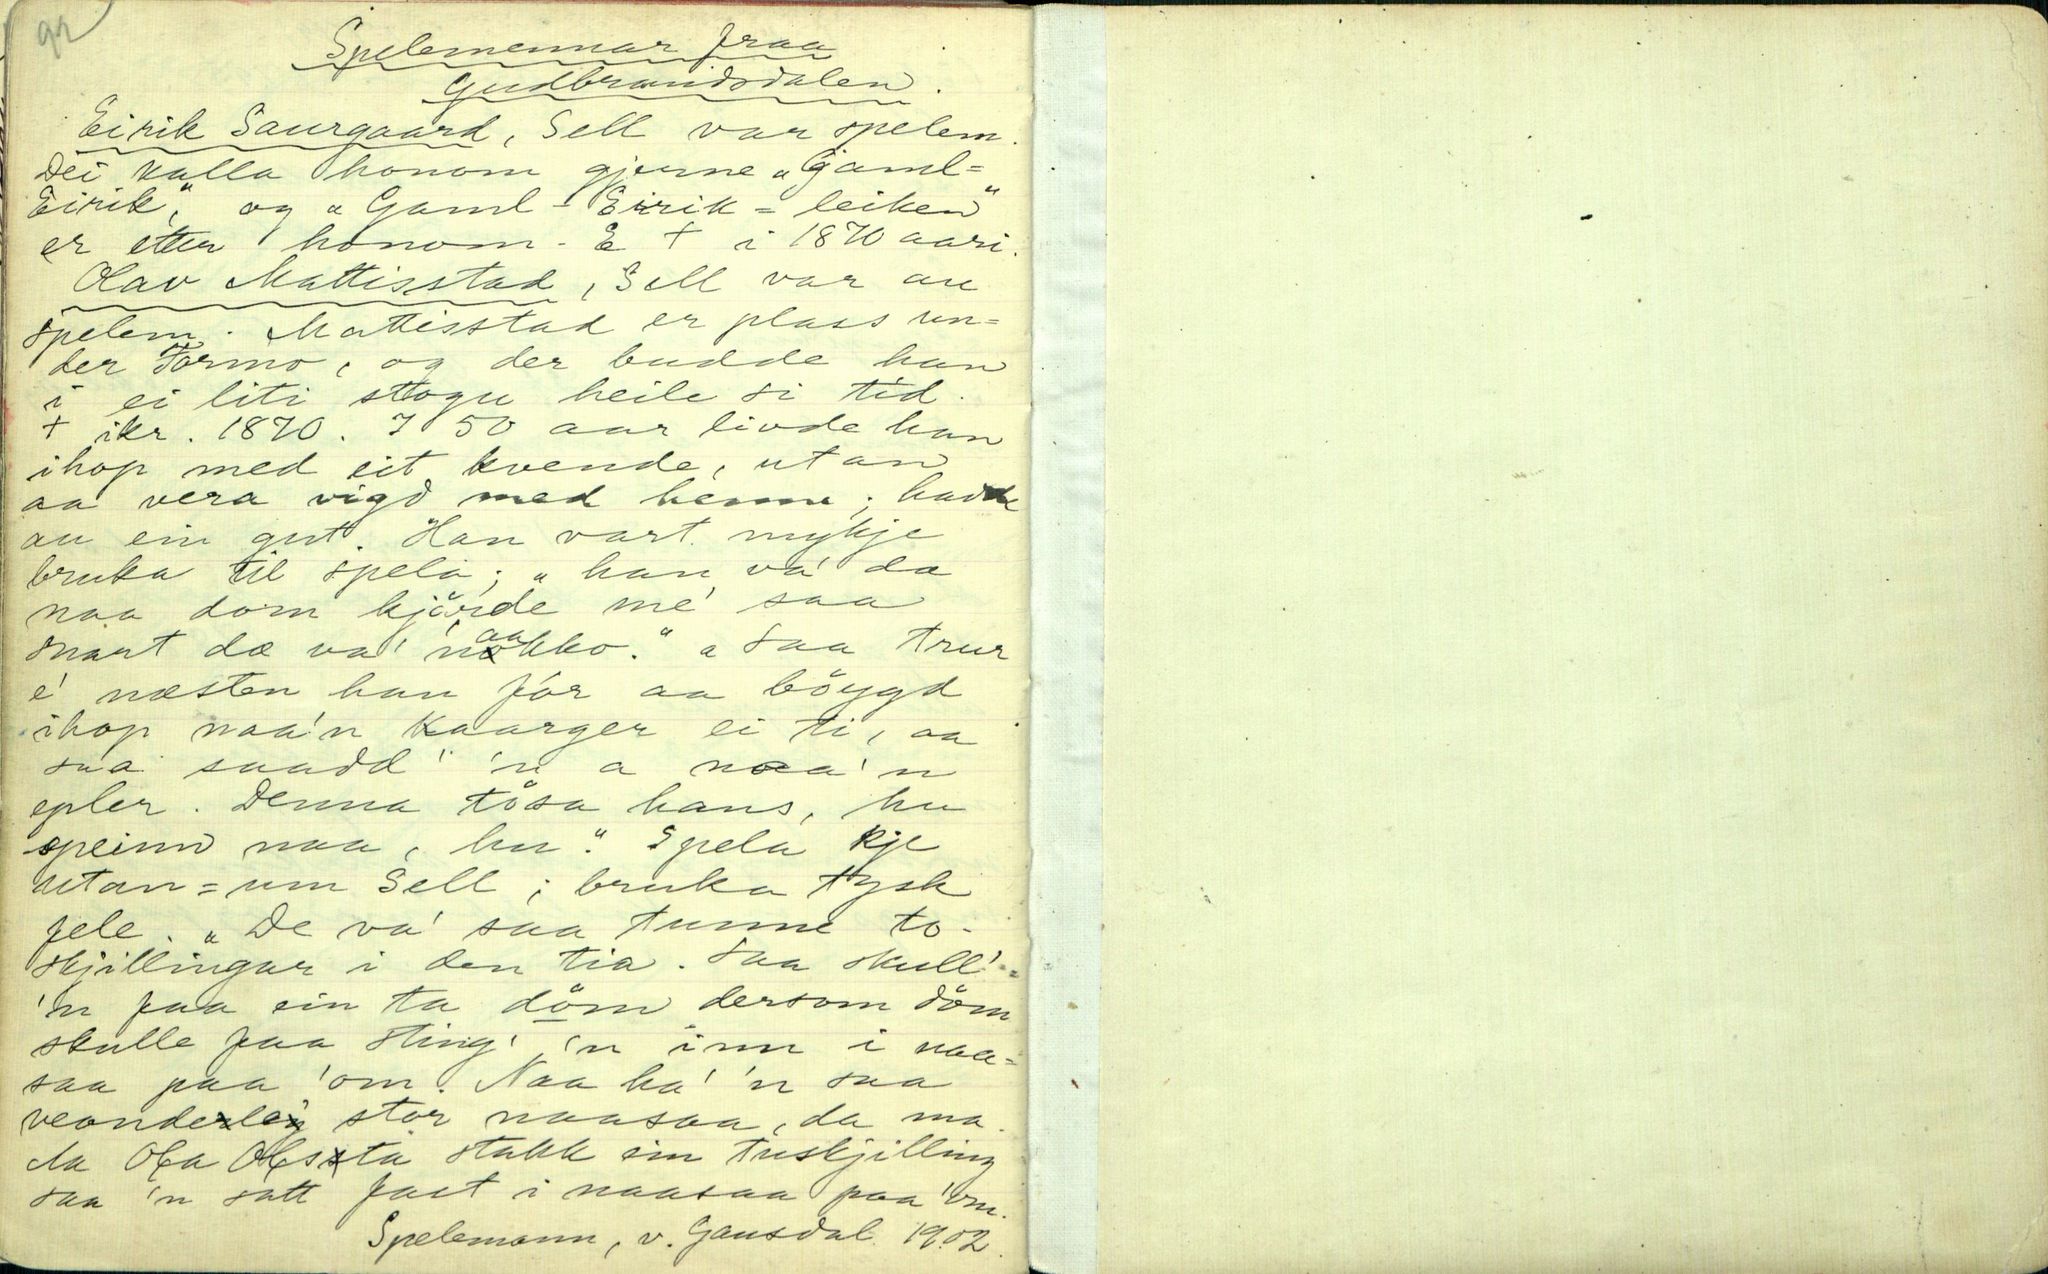 92
Spelemennar fraa
Gudbrandsdalen.
Eirik Saurgaard, Sell var spelem.
Dei kalla honom gjerne „Gaml=
Eirik“, og „Gaml-Eirik=leiken“
er etter honom. E † i 1870 aari.
Olav Mattisstad, Sell var au
spelem. Mattisstad er plass un=
der Formo, og der budde han
i ei liti stogu heile si tid.
† ikr. 1870. I 50 aar livde han
ihop med eit kvende, utan
aa vera vigd med henne; hadde
au ein gut. Han vart mykje
bruka til spela; „han va' da
naa dom kjörde me' saa
snart dæ va' naakko.“ „Saa trur
e' næsten han fór aa böygd
ihop naa'n kaarger ei ti, aa
saa saadd' 'n a naa'n
epler. Denna tösa hans, hu
speinn naa, hu.“ Spela kje
utan=um Sell; bruka tysk
fele. „De va' saa tunne to-
skjillingar i den tia. Saa skull'=
'n faa ein ta döm dersom döm
skulle faa sting' 'n inn i naa=
saa paa 'om. Naa ha' 'n saa
veonde stor naasaa, da ma.
Aa Ola Olssta stakk ein tuskjilling
saa 'n satt fast i naasaa paa 'om.
Spelemann, v. Gausdal 1902.